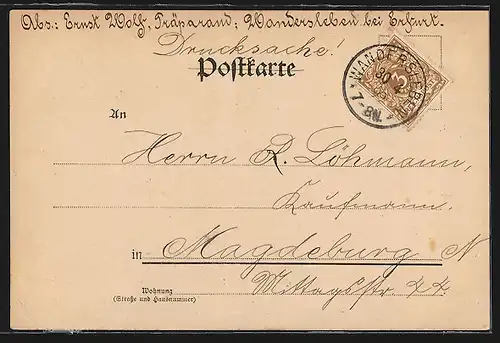 Abs.: Ernst Wolf, Präparand, Wandersleben bei Erfurt.
Drucksache!
Postkarte
WANDERSLEBEN
7-8N.
3
An
Herrn R. Löhmann,
Kaufmann.
in Magdeburg N
Mittagstr 22
Wohnung
(Straße und Hausnummer)